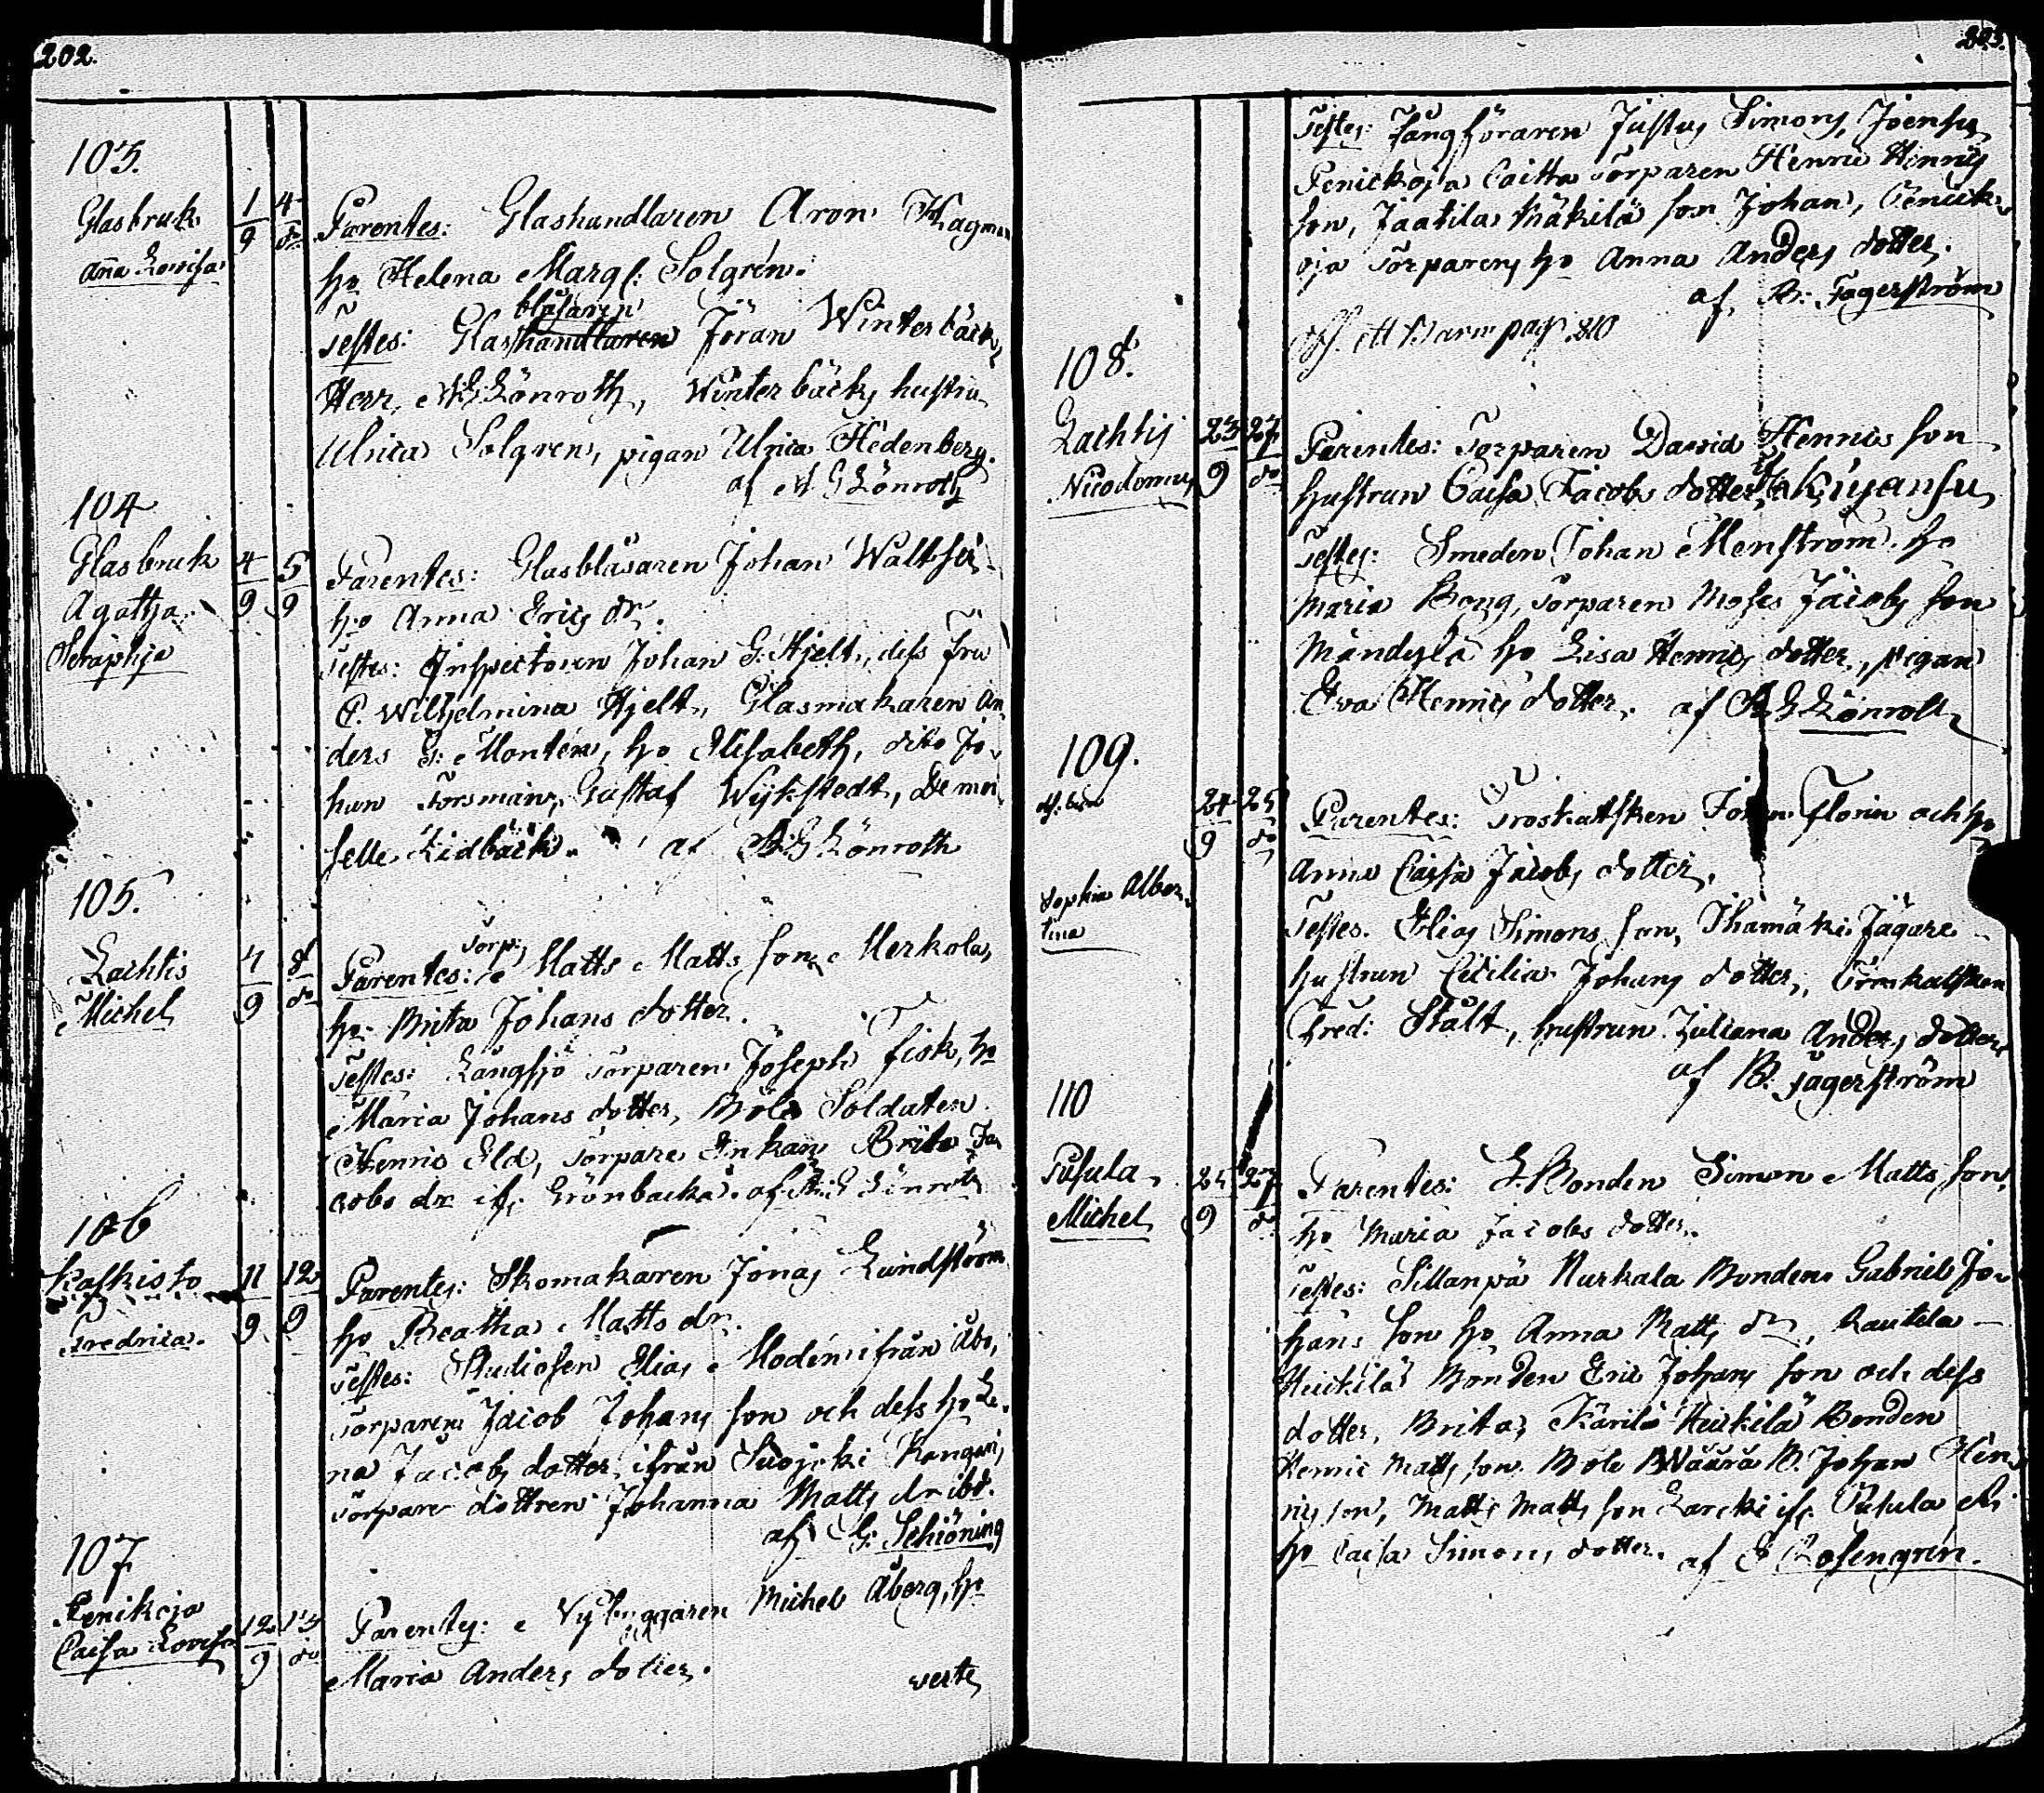 202.
103.
Glasbruk
Aña Lovisa
1 4
9 do
Parentes: Glashandlaren Aron Hagman
ho Helena Margt: Solgrén.
blåsaren
Testes: Glashandlaren Jöran Winterbäck,
Herr A G Lönroth, Winterbäcks hustru
Ulrica Solgren, pigan Ulrica Hedenberg.
af A G Lönroth
104
Glasbruk
Agatha
Seraphja
4 5
9 9
Parentes: Glasblåsaren Johan
ho Anna Erics dr.
Testes: Inspectoren Johan G. Hjelt, dess fru
C. Wilhelmina Hjelt, Glasmakaren An
ders G. Montén, ho Elisabeth, dito Jo-
han Forsman, Gustaf Wykstedt, Demoi
selle Lidbäck. af A G Lönroth
105.
Lachtis
Michel
4 8
9 do
Torp:
Parentes: Matts Matts son Merkola,
ho Brita Johans dotter.
Testes: Långsjö Torparen Joseph Fisk, ho
Maria Johans dotter, Böle Soldaten
Henric Eld, Torpare Enkan Brita Ja
cobs dr if: Grönbacka. af A G Lönroth
106
Kaskisto
Fredrica.
11 12
9 9
Parentes: Skomakaren Jonas Lundström
ho Beatha Matts dr.
Testes: Studiosen Elias Modén ifrån Åbo,
Torparen Jacob Johans son och dess ho Le-
na Jacobs dotter ifrån Suojoki
Torpare dottren Johanna Matts dr ibd.
af G: Schiöning
107
Penikoja
Caisa Lovisa
12 13
9 do
Parentes: Nybyggaren Michel Åberg, ho
Maria Anders dotter.
verte
203.
Testes: Fångföraren Justus Simons, Joensu
Penickoja Caitta Torparen Henric Henrics
son, Jaatila Mäkilä son Johan, Penick-
oja Torparens ho Anna Anders dotter.
af B: Fagerström
Obs. ett Barn pag. 210
108.
Lachtis
Nicodemus
23 27
9 do
Parentes: Torparen David Henrics son
hustrun Caisa Jacobs dotter,
Testes: Smeden Johan Menström. ho
Maria Bong, Torparen Moses Jacobs son
Mändylä ho Lisa Henrics dotter, pigan
Eva Henrics dotter. af A G Lönroth
109.
Sophia Alber-
tina
24 25
9 do
Parentes: Troskattsken Johan Florin och ho
Anna Caisa Jacobs dotter.
Testes. Elias Simons son, Ihamäki Jägare
hustrun Cecilia Johans dotter, Troskattsken
Fred: Stålt, hustrun Juliana Anders dotter
af B. Fagerström
110
Pusula
Michel
25 27
9 do
Parentes: L. Bonden Simon Matts son,
ho Maria Jacobs dotter.
Testes: Sillanpä Kurkala Bonden Gabriel Jo-
hans son ho Anna Matts dr, Rautila
Heickilä Bonden Eric Johans son och dess
dotter, Brita, Kärilä Heikilä Bonden
Henric Matts son Böle Wäärä B. Johan Hen
rics son, Matts Matts son Larcki if: Pusula
ho Caisa Simons dotter. af E Rosengrén.